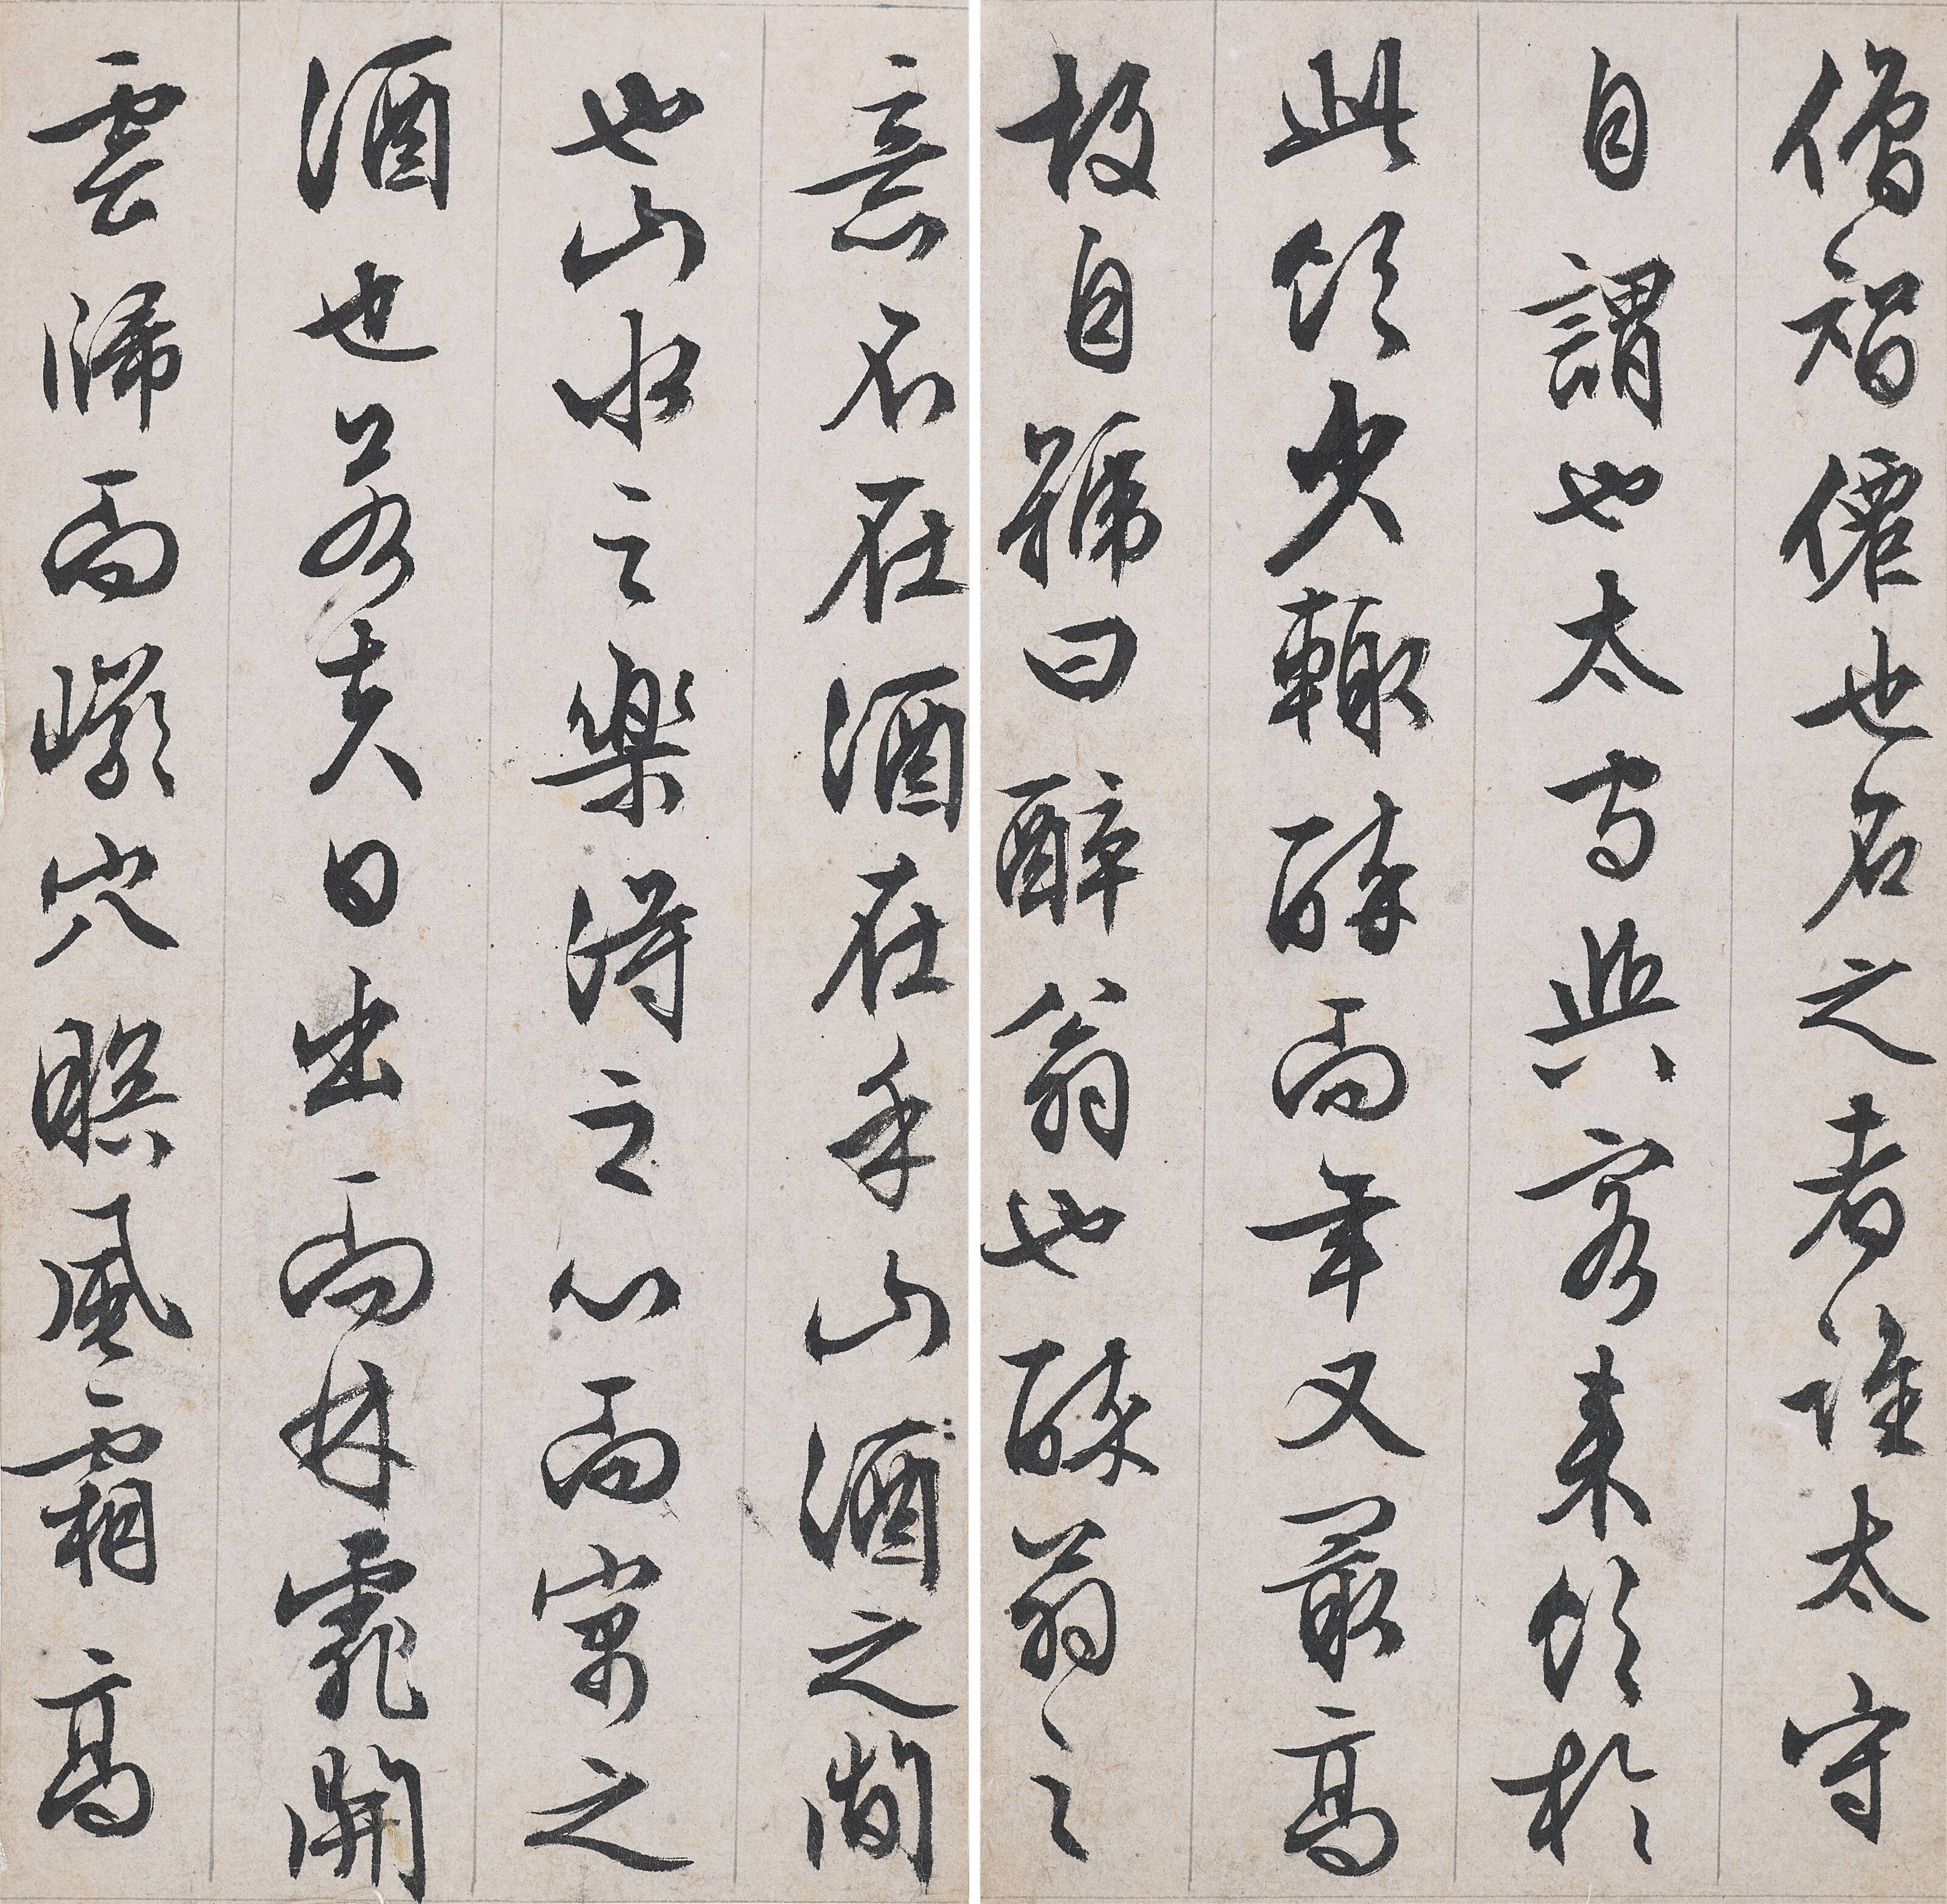 僧智僊也名之者誰太守
自謂也太守與客来飲於
此飲少輒醉而年又最高
故自號曰醉翁也醉翁之
意不在酒在乎山酒之間
也山水之樂得之心而寓之
酒也若夫日出而林霏開
雲歸而巖穴暝風霜高